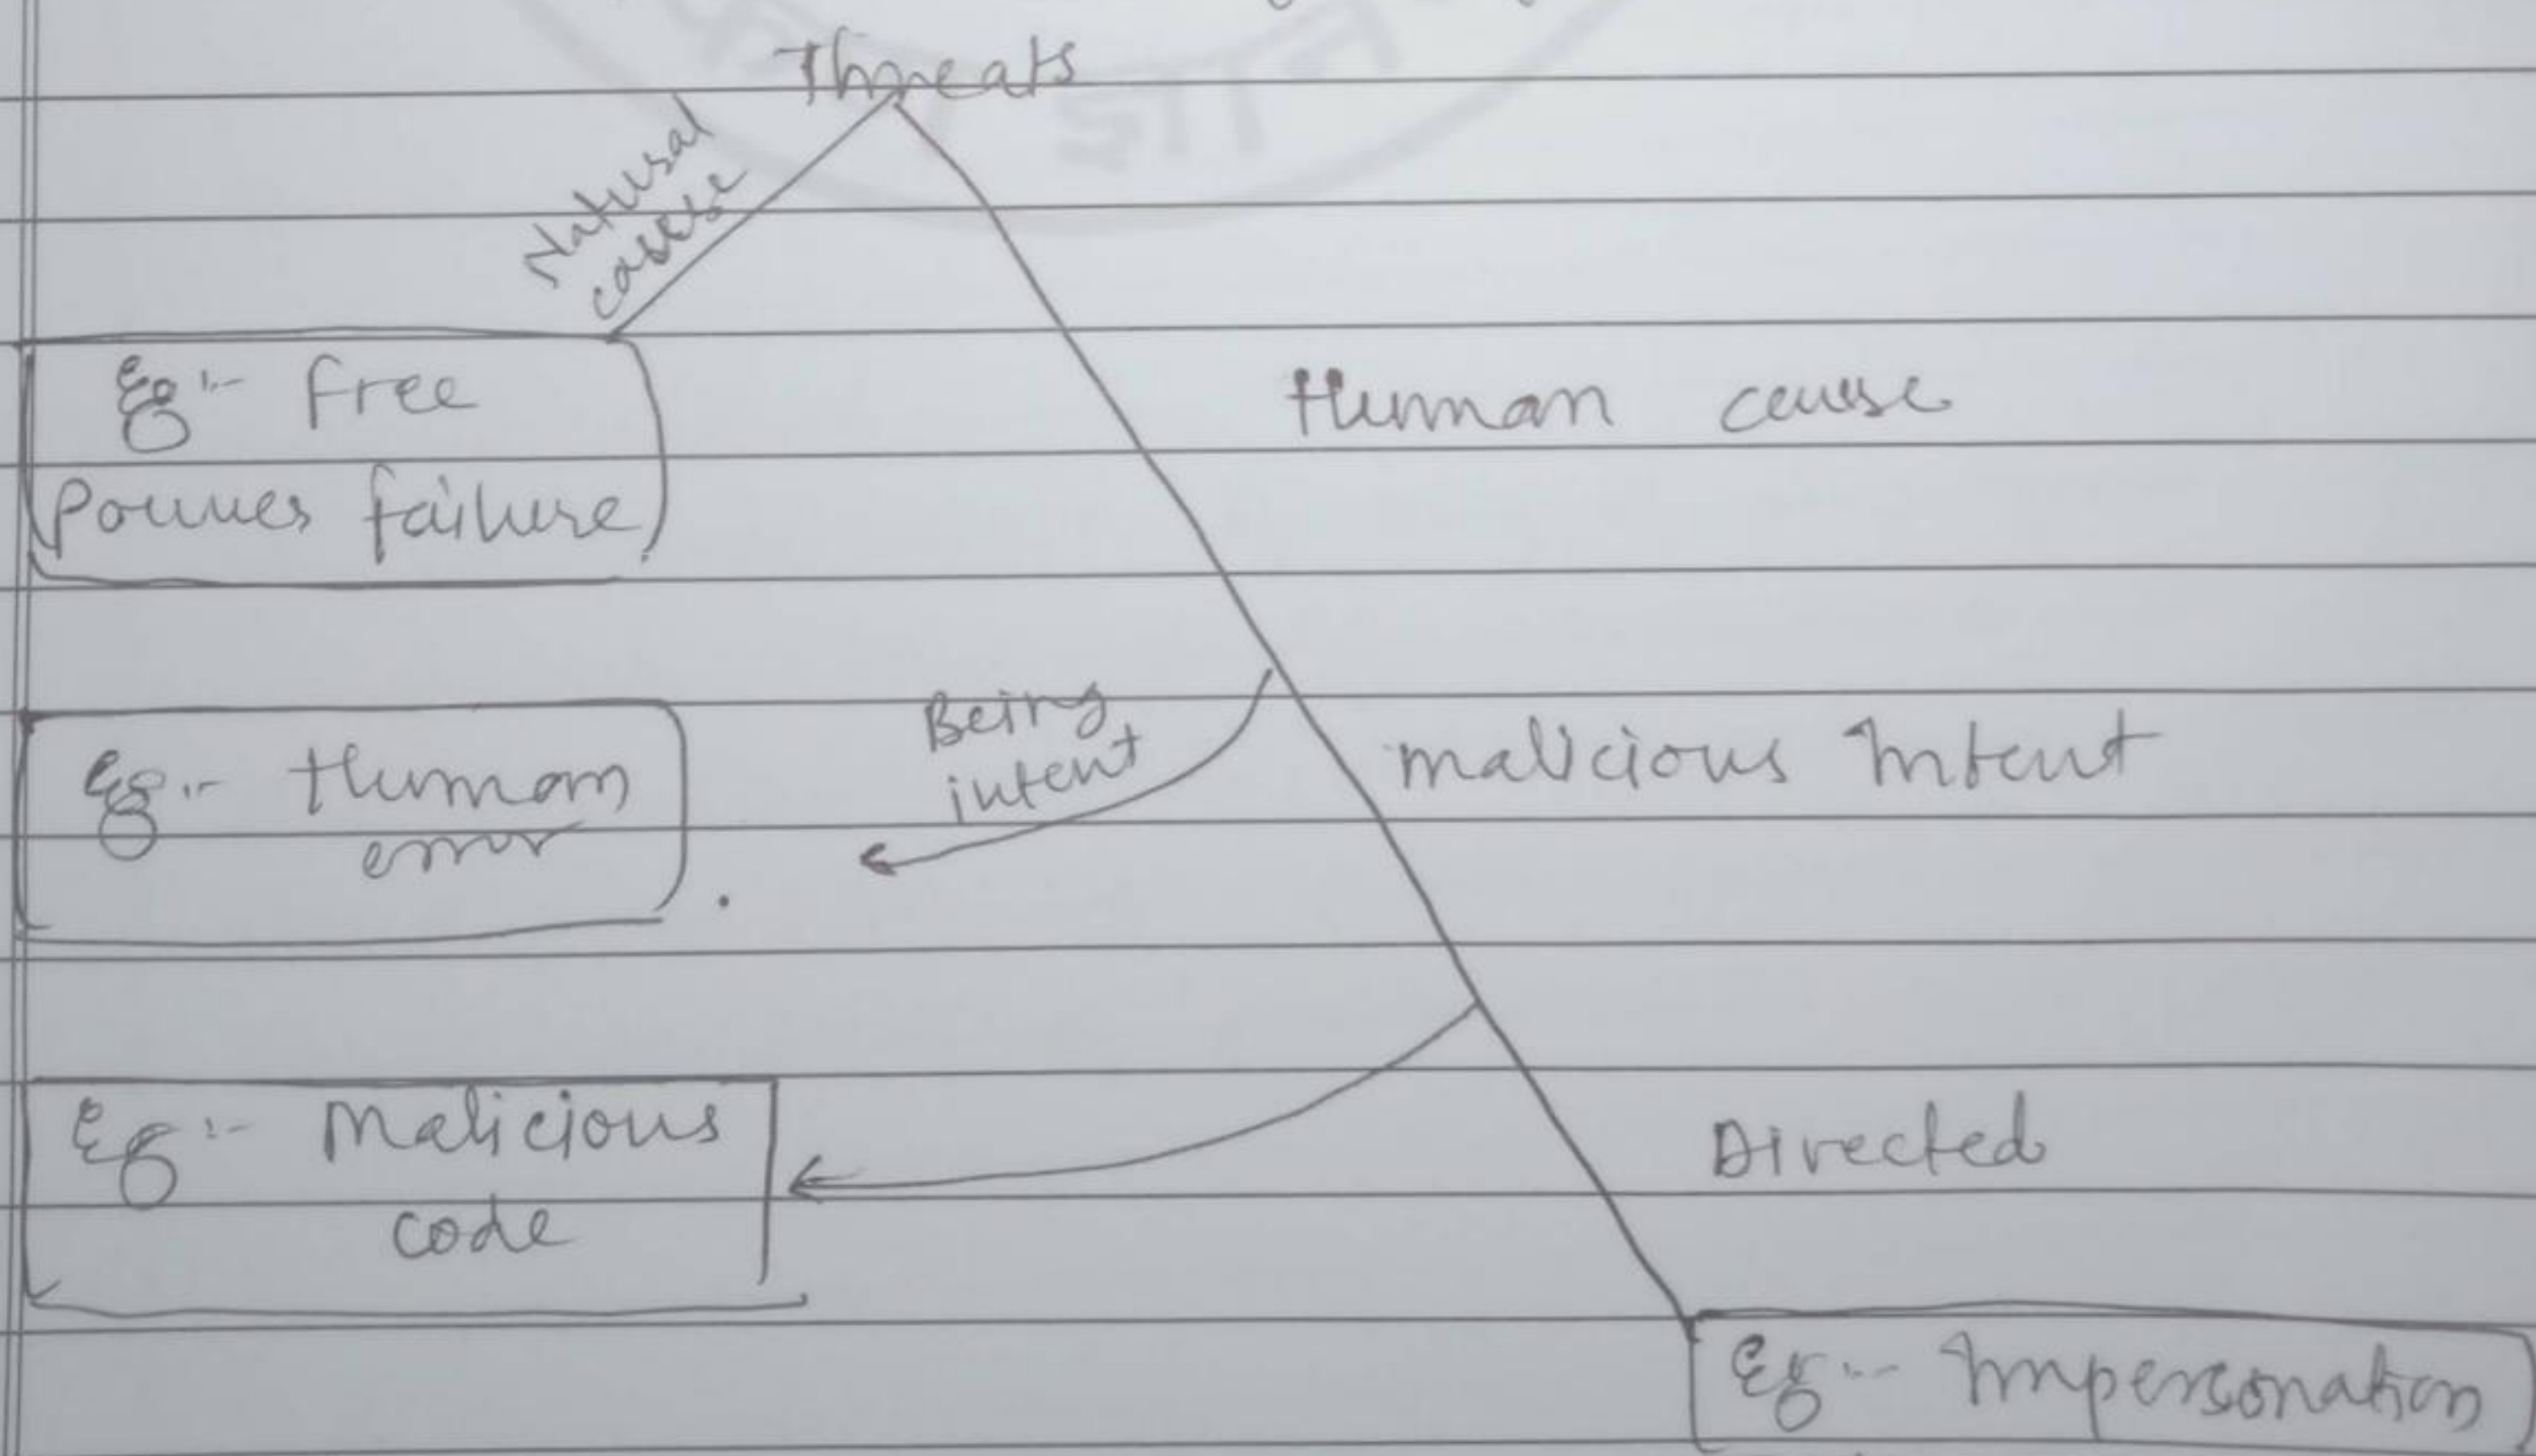 Threats
Natural
cause
Eg :- free
Power failure
Human cause
Being
intent
malicious Intent
Eg :- Human
error
Eg :- Malicious
code
Directed
Eg :- Impersonation